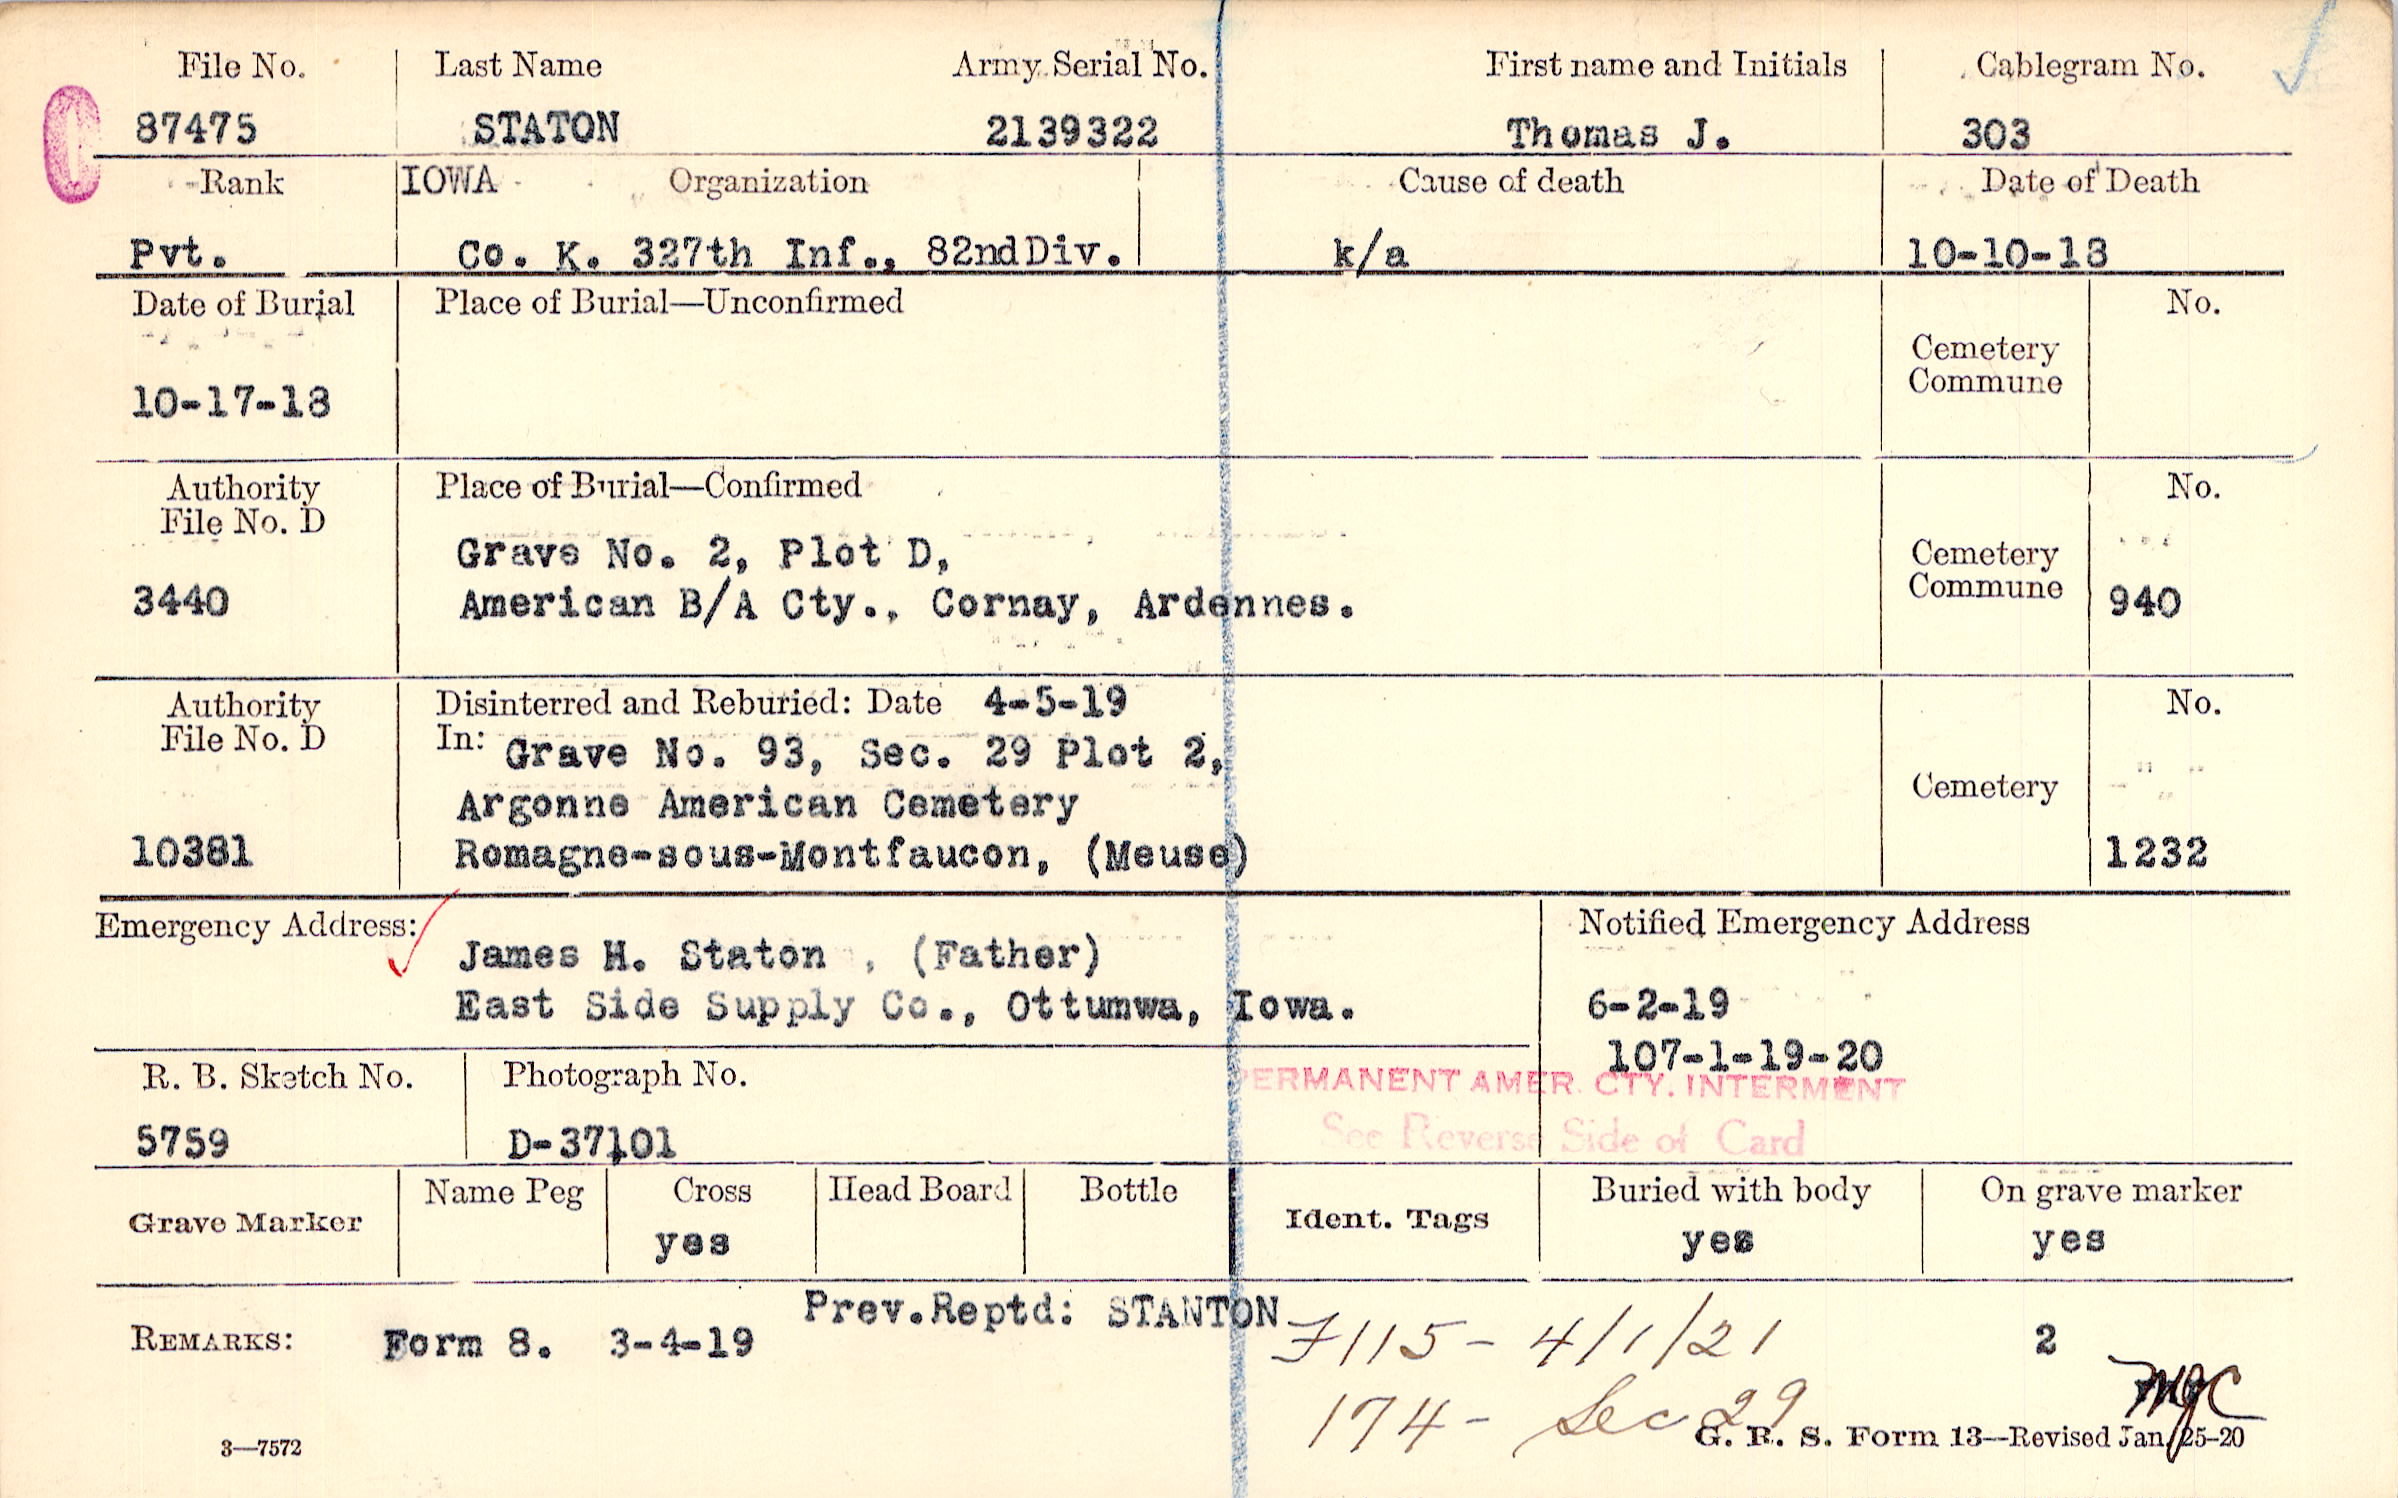 File No. Last Name Army Serial No. First name and Initials Cablegram No.
87475 STATON 2139322 Thomas J. 303
Rank IOWA Organization Cause of death Date of Death
Pvt. Co. K. 327th Inf., 82nd Div. k/a 10-10-18
Date of Burial Place of Burial—Unconfirmed No.
Cemetery
Commune
10-17-18
Authority Place of Burial—Confirmed No.
File No. D
Grave No. 2, Plot D, Cemetery
3440 American B/A Cty., Cornay, Ardennes. Commune 940
Authority Disinterred and Reburied: Date 4-5-19 No.
File No. D In: Grave No. 93, Sec. 29 Plot 2,
Argonne American Cemetery Cemetery
10381 Romagne-sous-Montfaucon, (Meuse) 1232
Emergency Address: Notified Emergency Address
James H. Staton , (Father)
East Side Supply Co., Ottumwa, Iowa. 6-2-19
107-1-19-20
R. B. Sketch No. Photograph No. PERMANENT AMER. CTY. INTERMENT
5759 D-37101 See Reverse Side of Card
Grave Marker Name Peg Cross Head Board Bottle Ident. Tags Buried with body On grave marker
yes yes yes
Prev.Reptd: STANTON
REMARKS: Form 8. 3-4-19 F115- 4/1/21 2
174- Sec 29
3—7572 G. R. S. Form 13—Revised Jan. 25-20